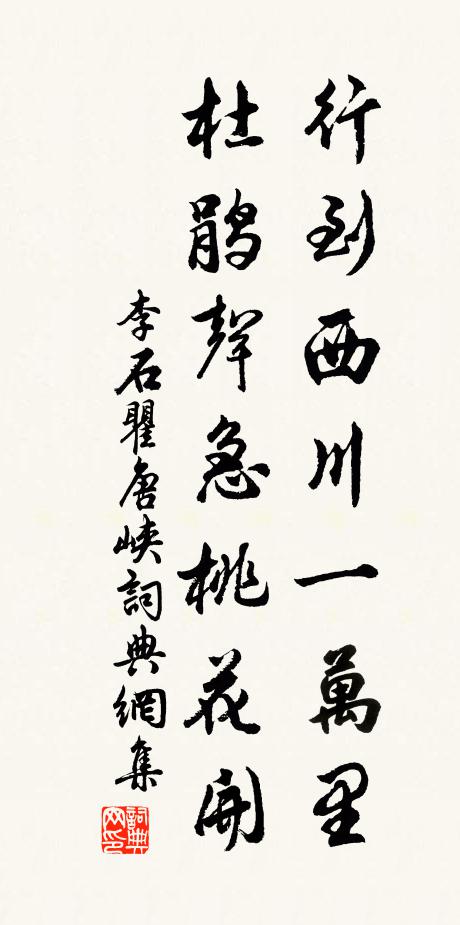 行到西川一萬里
杜鵑聲急桃花開
李石瞿唐峽詞典網集
詞典網印